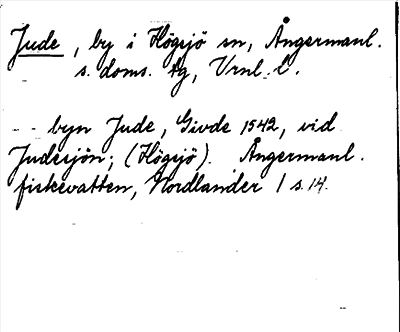 Jude, by i Högsjö sn, Ångermanl.
s. doms. tg, Vrnl. l.
- - byn Jude, Givde 1542, vid
Judesjön; (Högsjö). Ångermanl.
fiskevatten, Nordlander / s. 14.